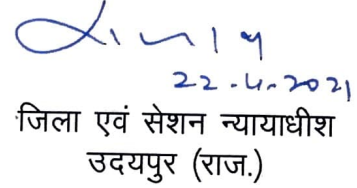 22.4.2021
जिला एवं सेशन न्यायाधीश
उदयपुर (राज.)